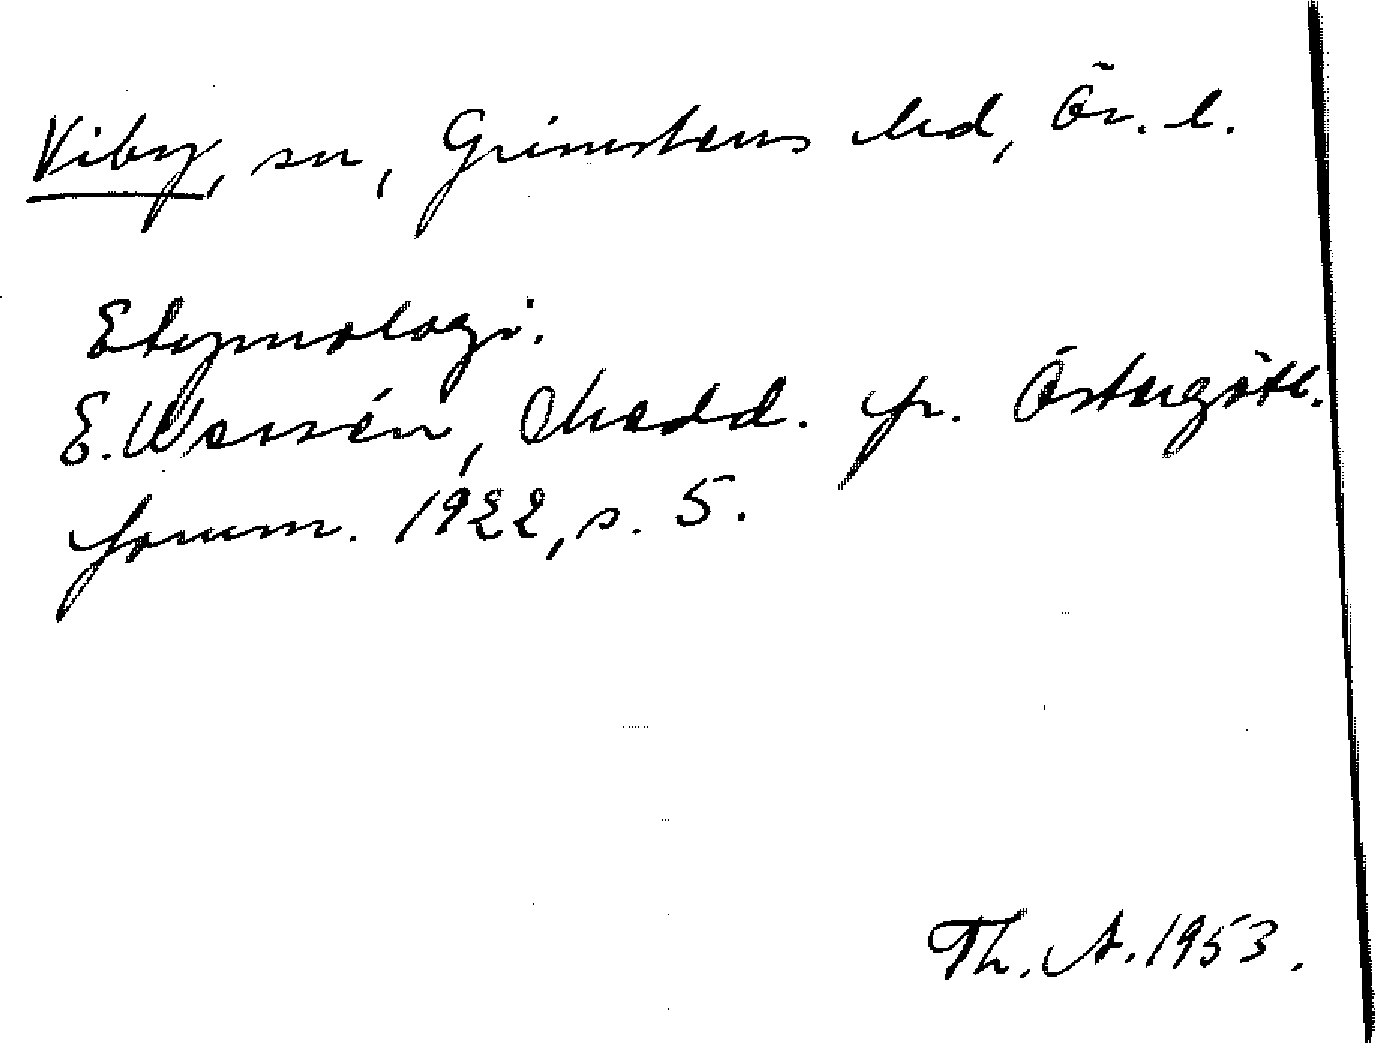 Viby, sn, Grimstens hd, Ör. l.
Etymologi.
E. Wessén, Medd. fr. Östergötl.
fornm. 1922, s. 5.
Th. A. 1953.